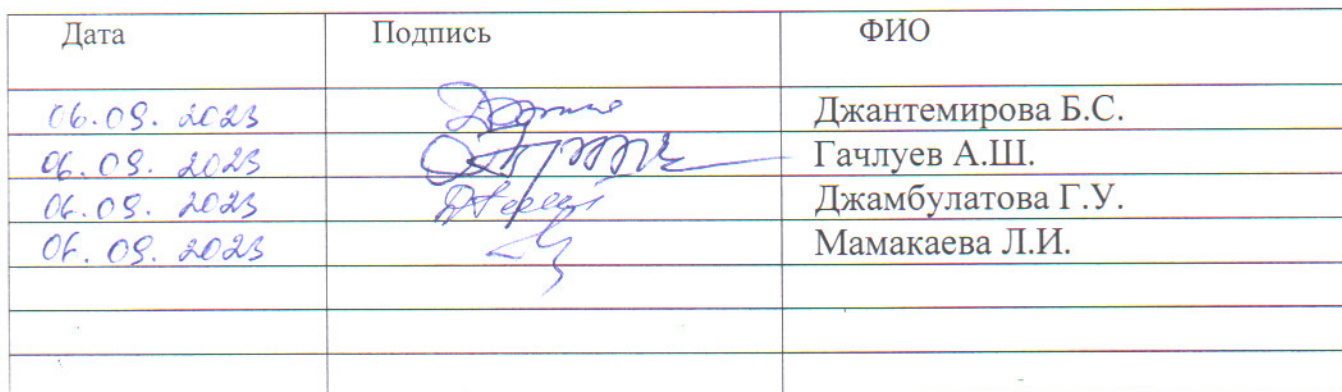 Дата Подпись ФИО
06.09.2023 Джантемирова Б.С.
06.09.2023 Гачлуев А.Ш.
06.09.2023 Джамбулатова Г.У.
06.09.2023 Мамакаева Л.И.